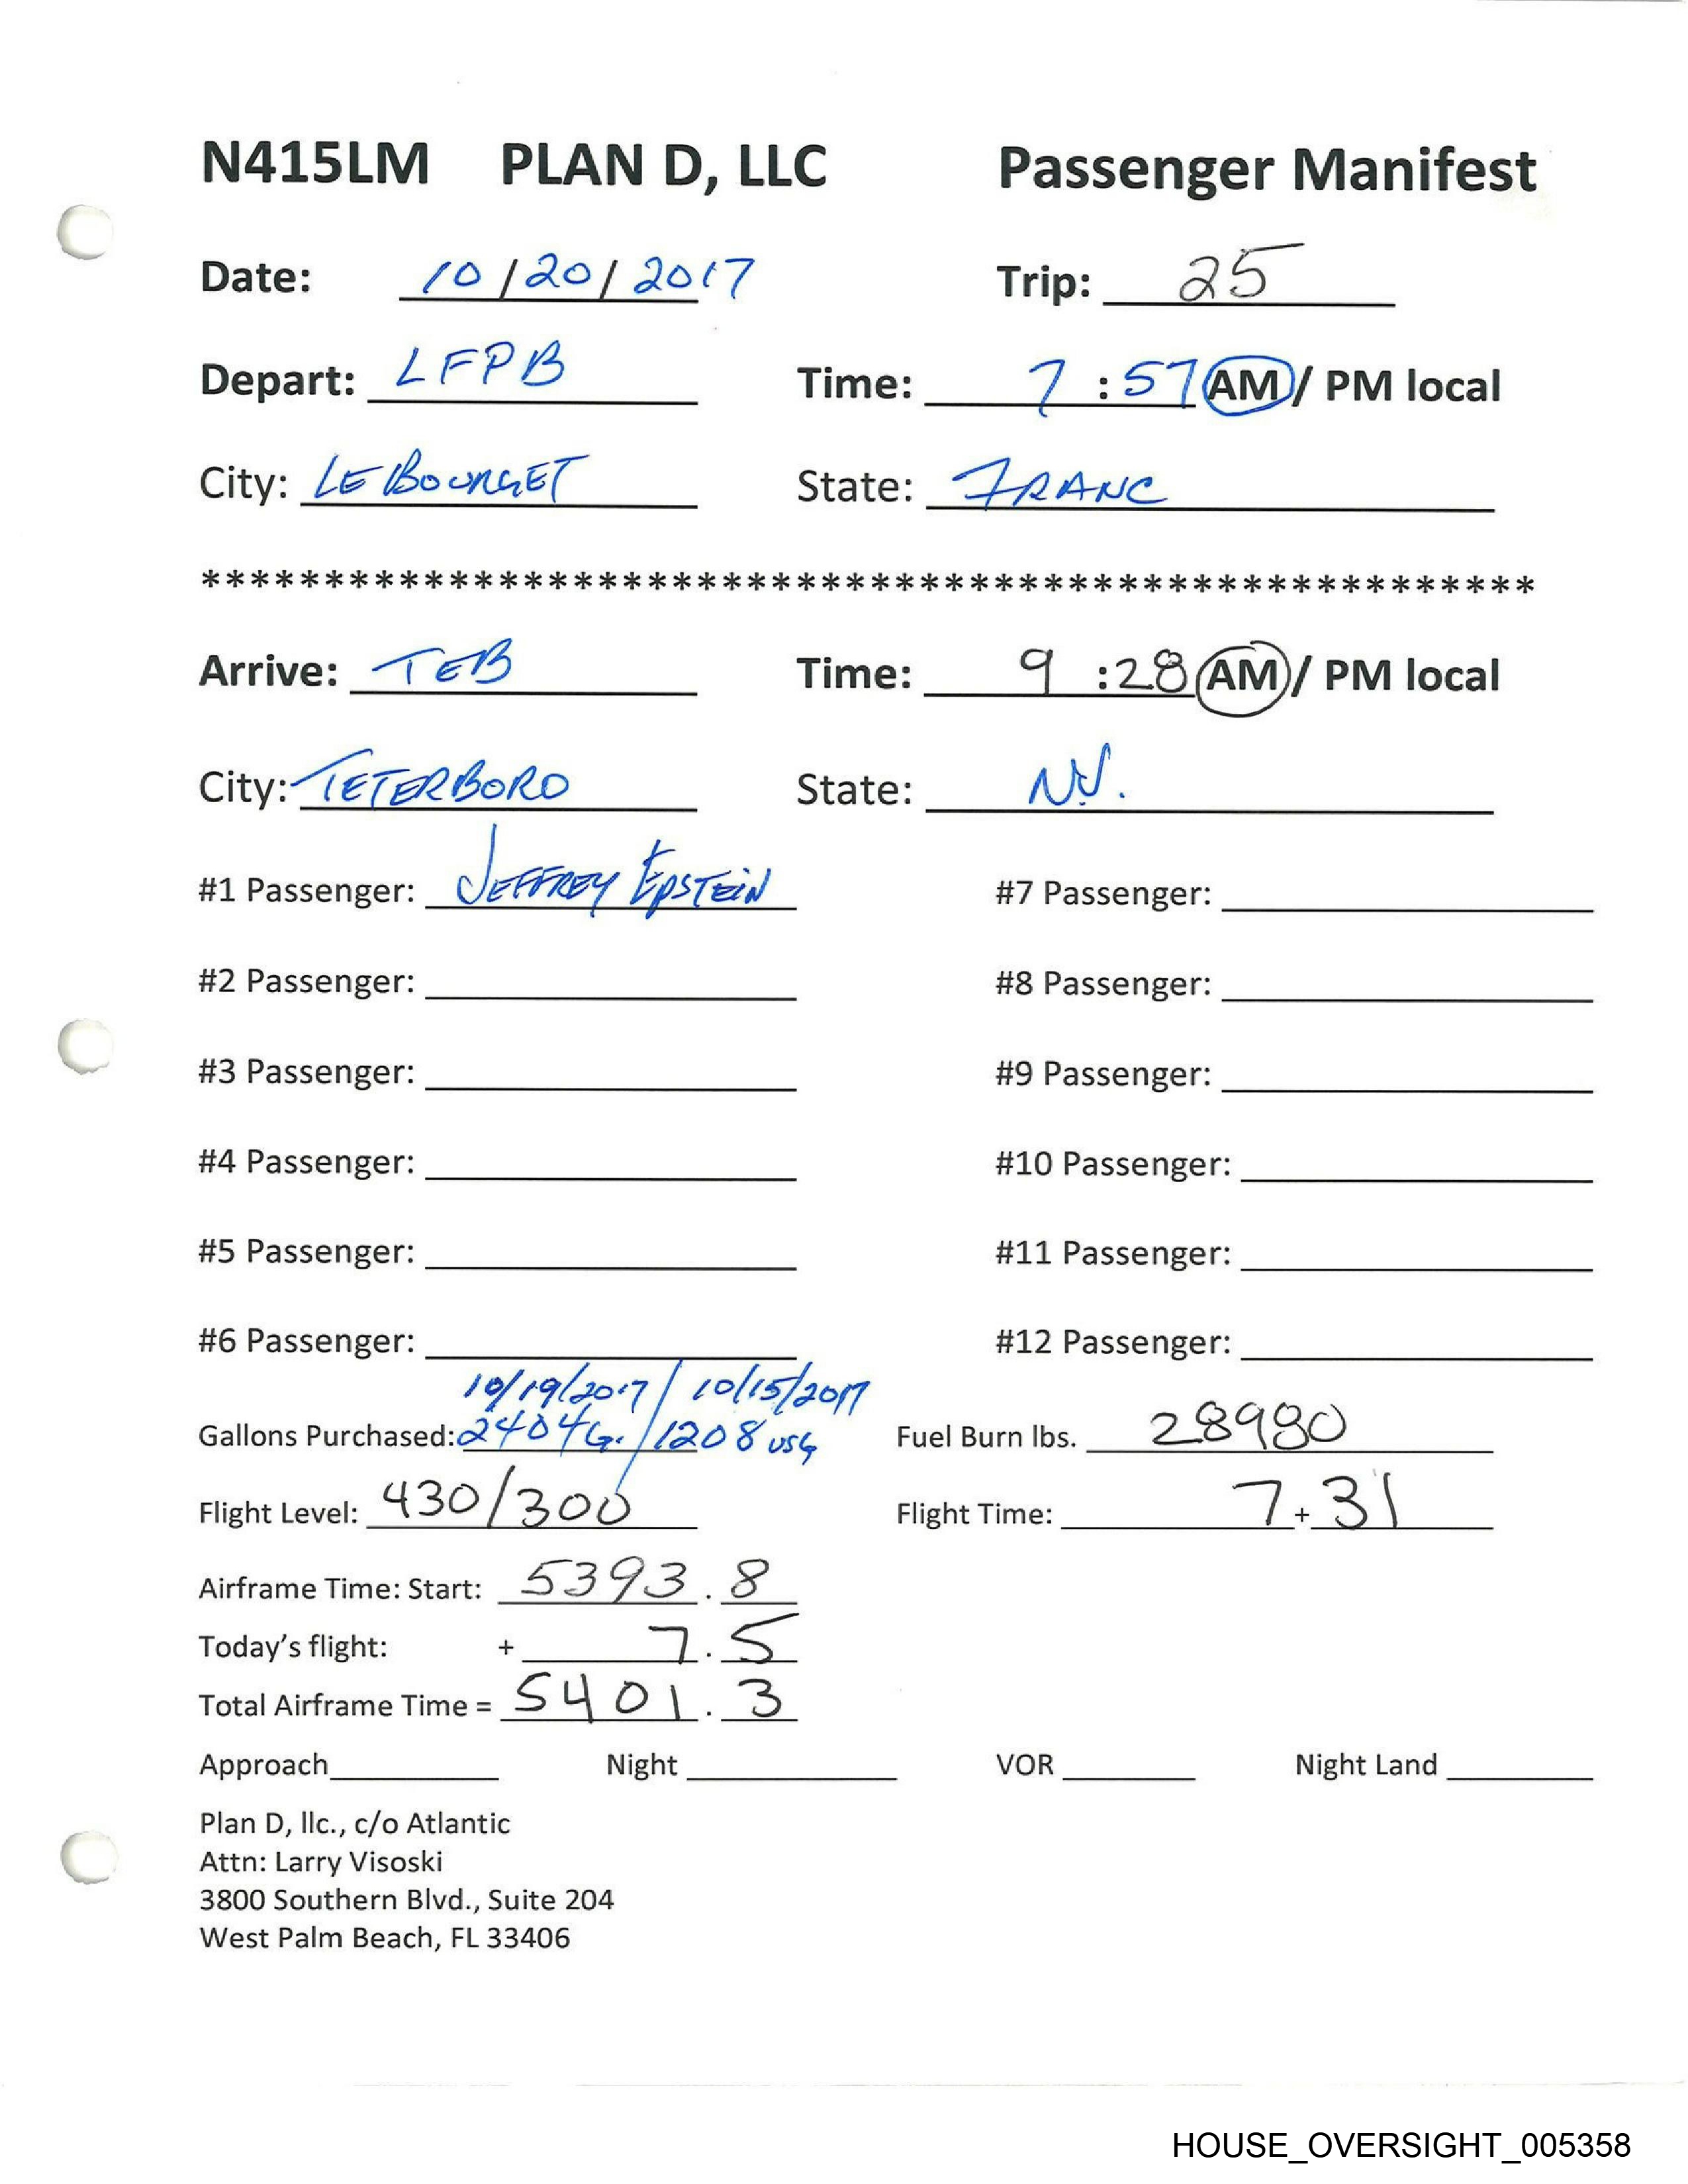 N415LM PLAN D, LLC Passenger Manifest
Date: 10/20/2017 Trip: 25
Depart: LFPB Time: 7:57 AM / PM local
City: LE BOURGET State: FRANC
******************************************************
Arrive: TEB Time: 9:28 AM / PM local
City: TETERBORO State: NJ.
#1 Passenger: JEFFREY EPSTEIN #7 Passenger:
#2 Passenger: #8 Passenger:
#3 Passenger: #9 Passenger:
#4 Passenger: #10 Passenger:
#5 Passenger: #11 Passenger:
#6 Passenger: #12 Passenger:
10/19/2017 / 10/15/2017
Gallons Purchased: 2404 G. / 1208 USG Fuel Burn lbs. 28980
Flight Level: 430/300 Flight Time: 7+31
Airframe Time: Start: 5393.8
Today's flight: + 7.5
Total Airframe Time = 5401.3
Approach Night VOR Night Land
Plan D, llc., c/o Atlantic
Attn: Larry Visoski
3800 Southern Blvd., Suite 204
West Palm Beach, FL 33406
HOUSE_OVERSIGHT_005358